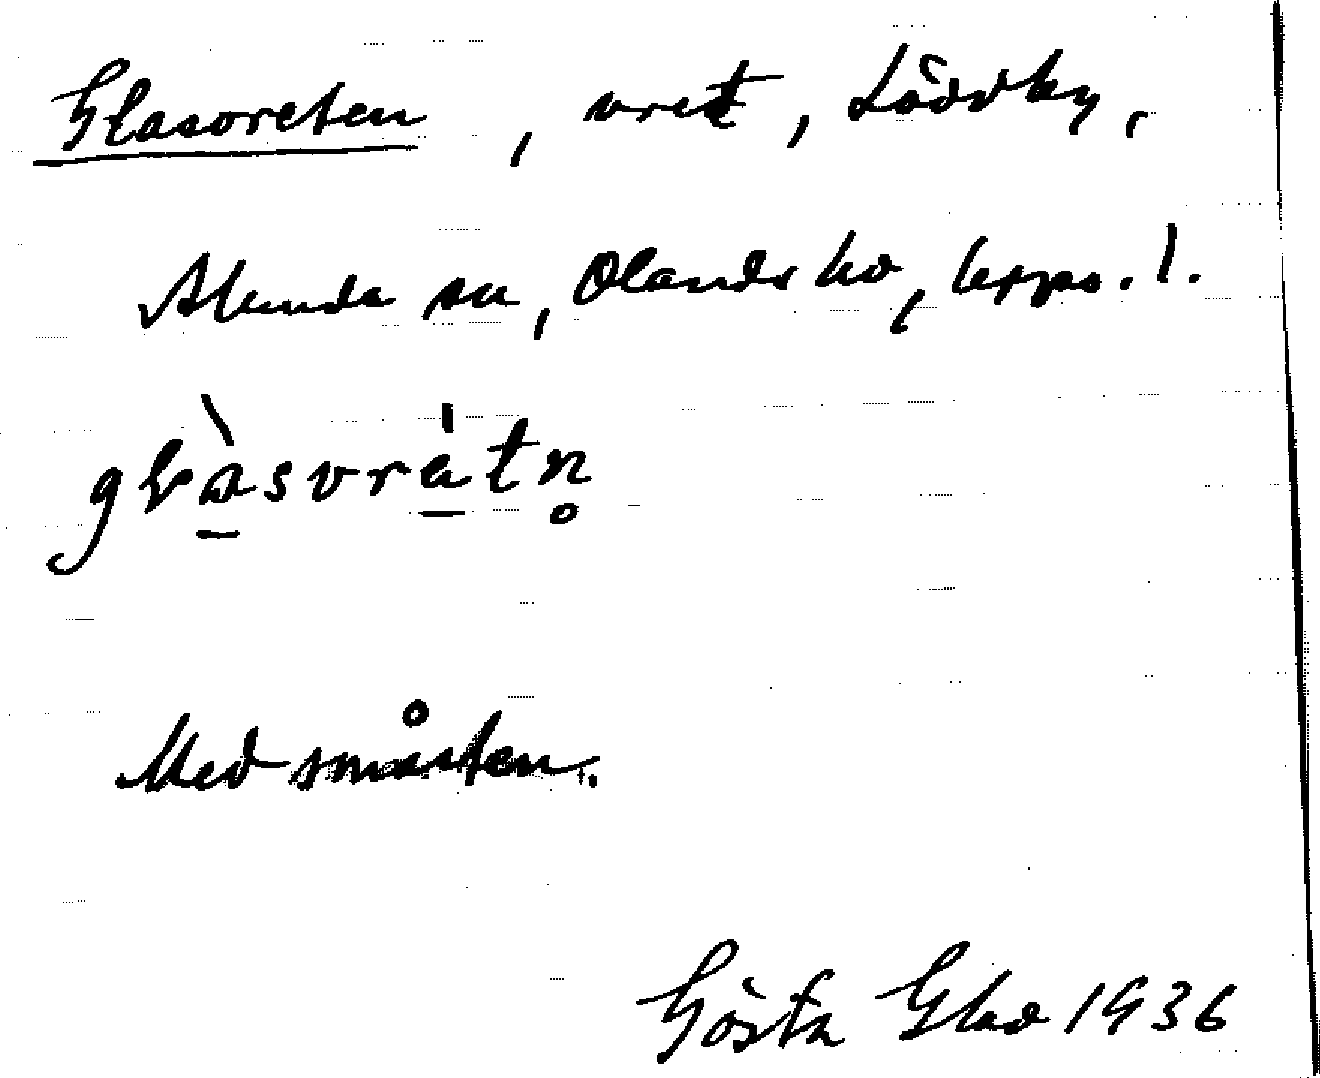 Glasvreten, vret, Lövsby,
Alunda sn, Olands hd, Upps. l.
glàsvrètn̥
Med småsten.
Gösta Glad 1936